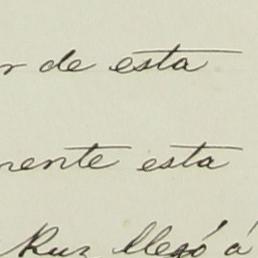 r de esta
mente esta
Ruz llegó á